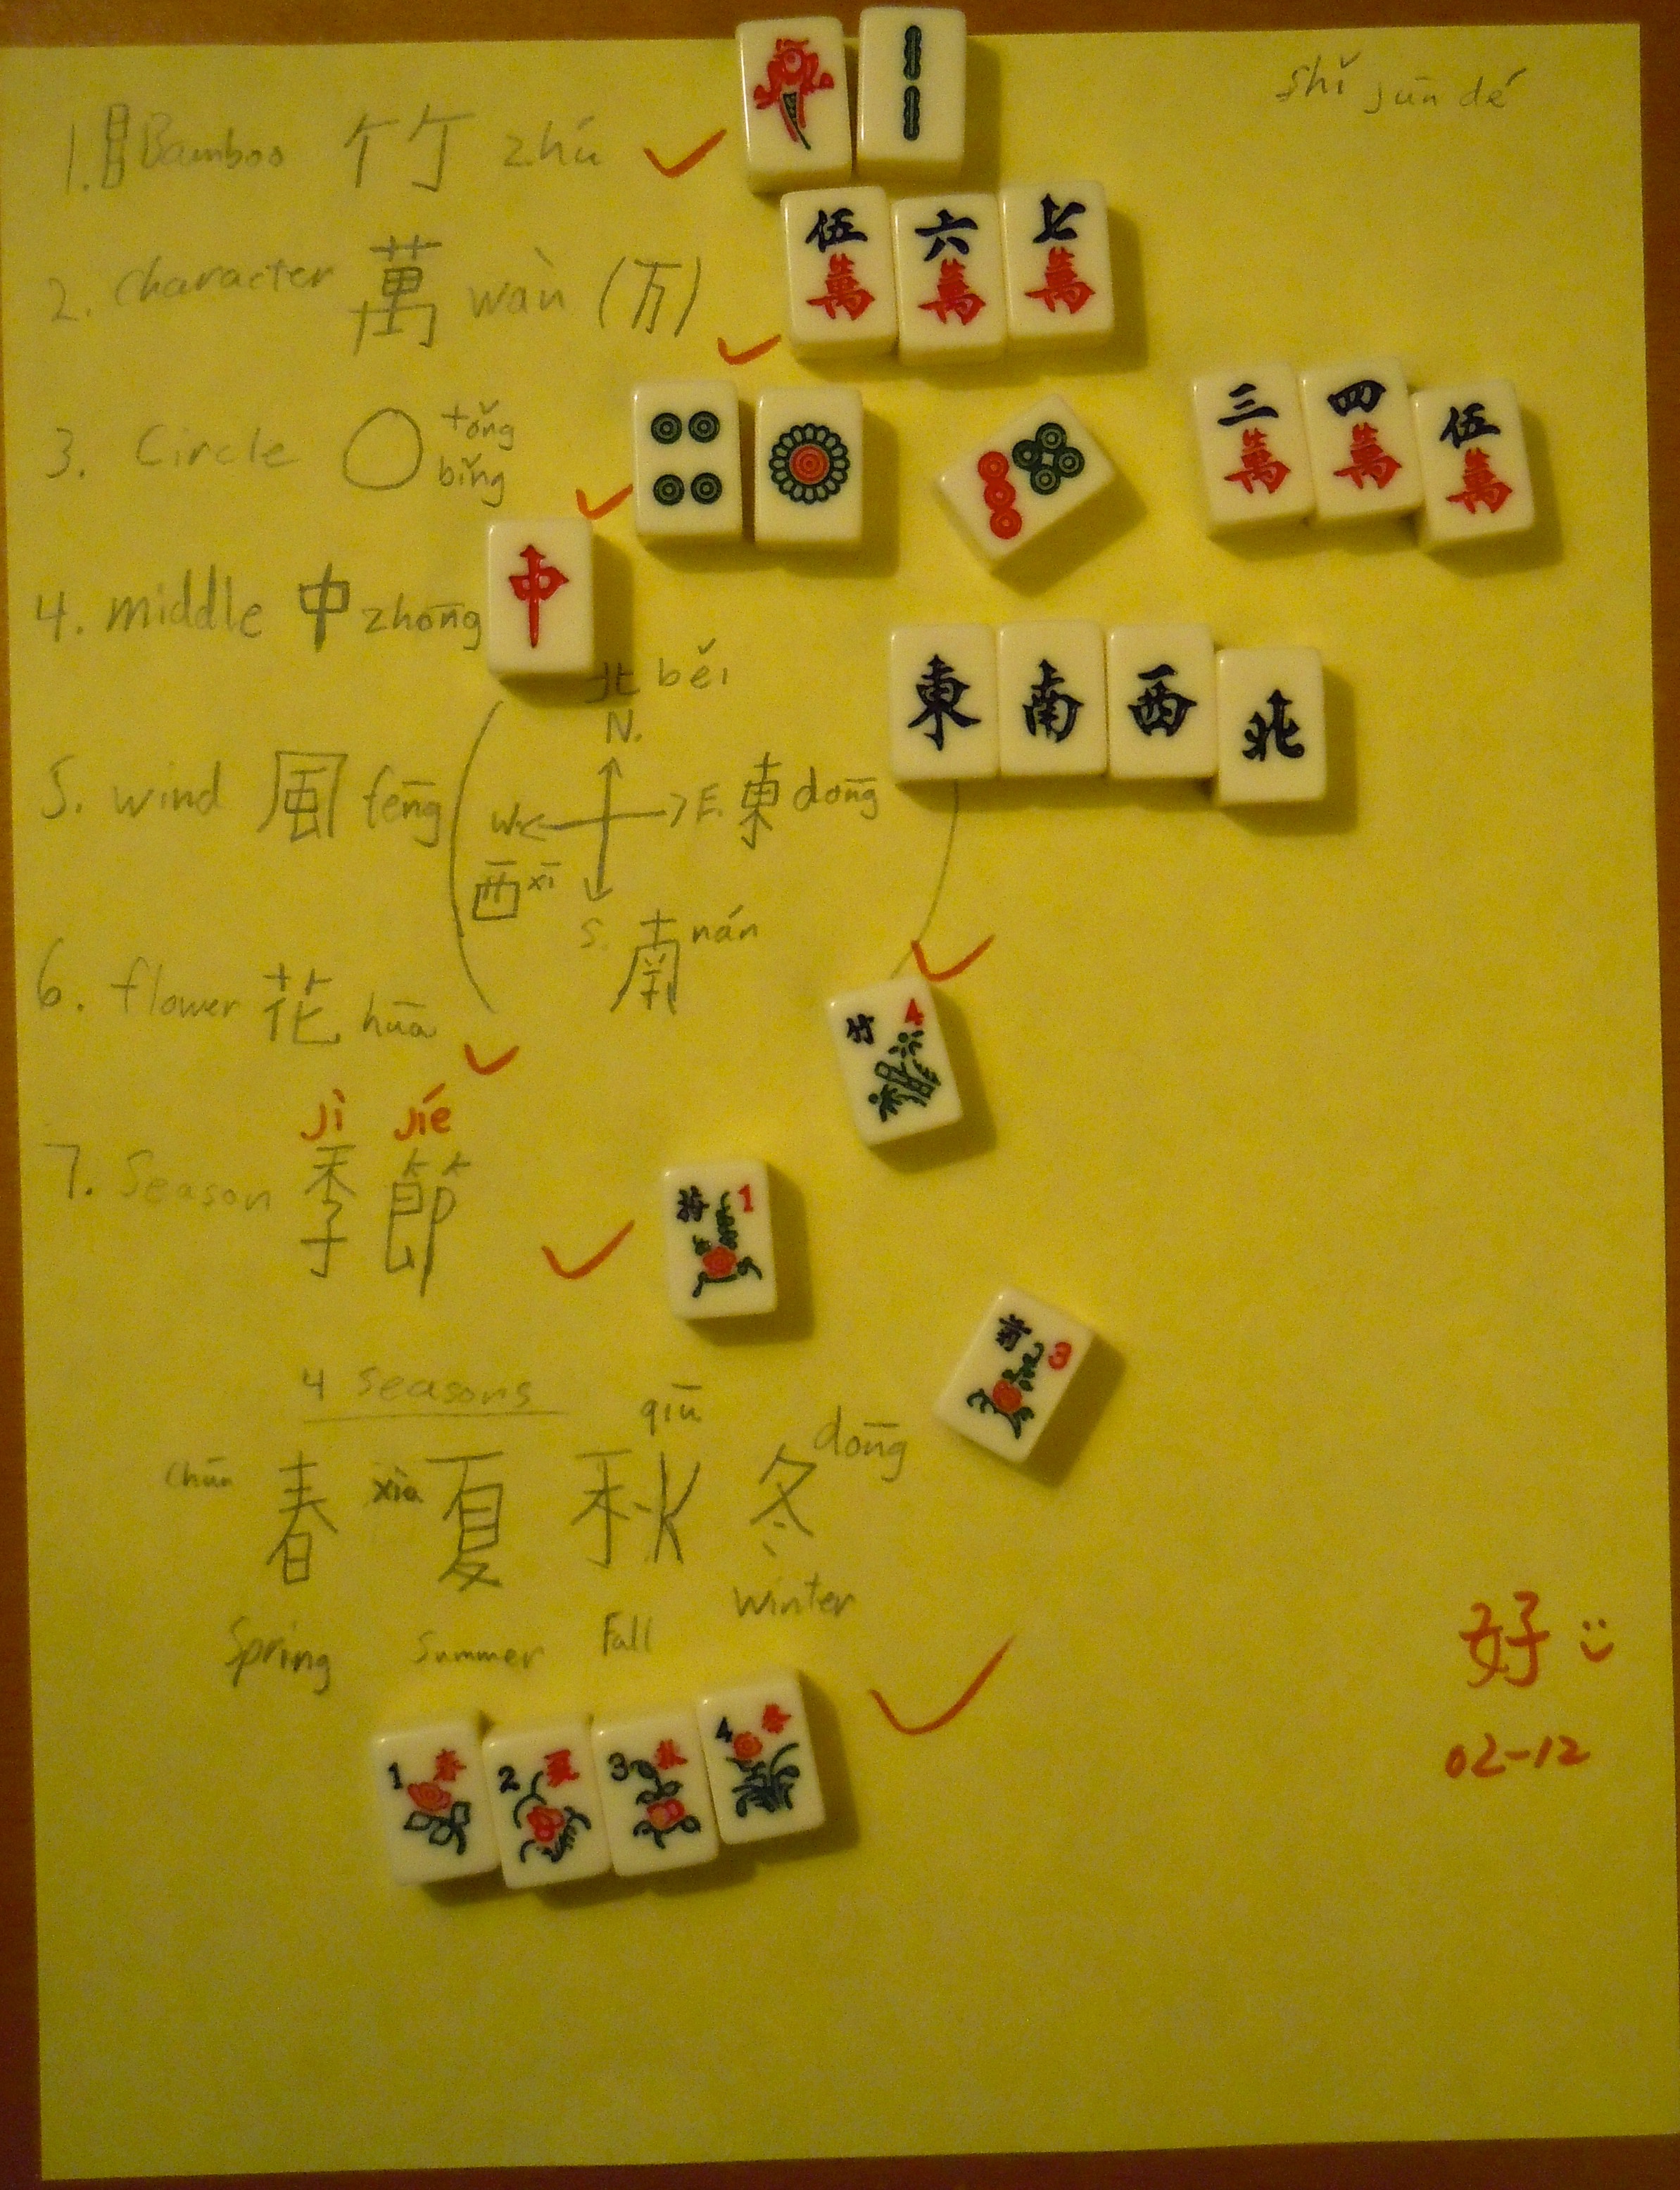 shǐ jūn dé
1. Bamboo 竹 zhú
2. Character 萬 wàn (万)
伍 六 七
萬 萬 萬
3. Circle tǒng
bǐng
三 四 伍
萬 萬 萬
4. middle 中 zhōng
中
東 南 西 北
北 běi
N.
5. wind 風 fēng
W. E. 東 dōng
西 xī
S. 南 nán
6. flower 花 huā
竹 4
jì jié
7. Season 季 節
梅 1
菊 3
4 seasons
chūn 春 xìa 夏 qiū 秋 冬 dōng
Spring Summer Fall Winter
1 春 2 夏 3 秋 4 冬
好
02-12